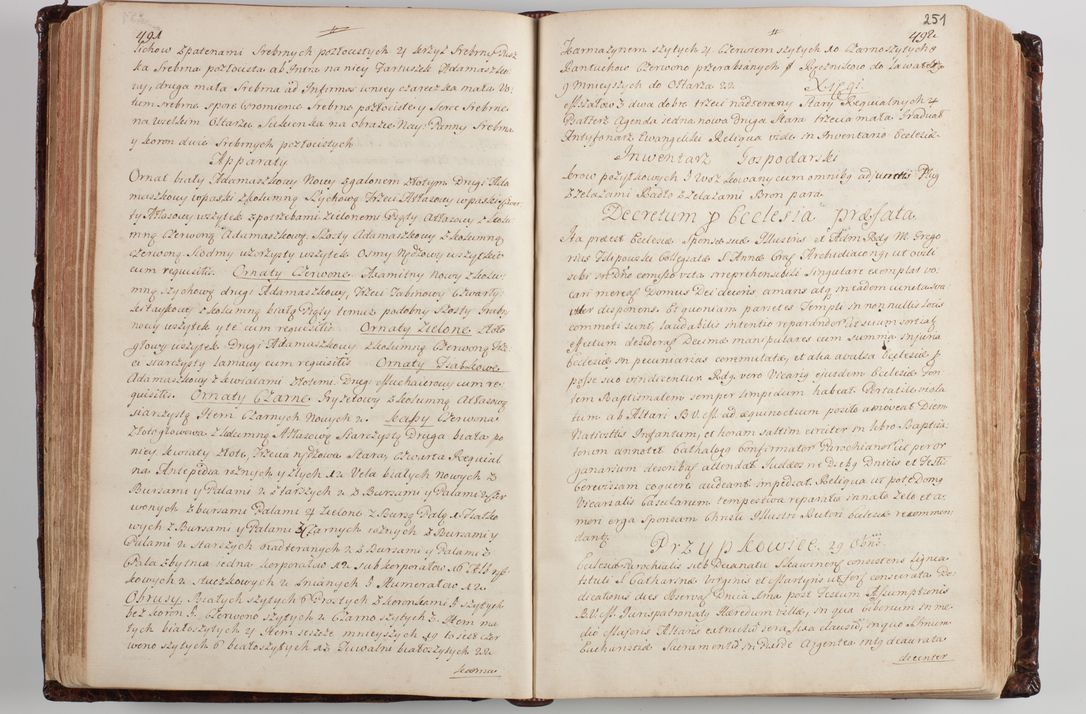 491
lichow z patenami Srebrnych pozłocistych 4 Krzyż Srebrny Pusz
ka Srebrna pozłocista ab Intra na niey Fartuszek Adamaszko
wy, druga mała Srebrna ad Infirmos w niey czareczka mała Vo
tum Srebrne Spore Gromienne Srebrne pozłociste y Serce Srebrne
na Wielkim Ołtarzu Sukienka na Obrazie Nay: Panny Srebrna
y koron dwie Srebrnych pozłocistych
Apparaty
Ornat biały Adamaszkowy Nowy z galonem złotym Drugi Ada
maszkowy w paski z kolumną Szychową Trzeci Atłasowy w paski Czwar
ty Atłasowy wszytek z potrzebami zielonemi Piąty Atłasowy z kolu
mną Czerwoną Adamaszkową, Szosty Adamaszkowy z kolumną
czerwoną Siodmy wzorzysty wszytek Osmy Rydzowy wszytkie
cum requisitis. Ornaty Czerwone. Axamitny Nowy z kolu
mną szychową drugi Adamaszkowy, Trzeci Tabinowy Czwarty
Kitaykowy z kolumną białą Piąty temuz podobny Szosty Srebr
nowy wszytek y te cum requisitis Ornaty Zielone Złoto
głowy wszytek Drugi Adamaszkowy z kolumną Czerwoną Trze
ci starzysty lamowy cum requisitis Ornaty Fiałkowe
Adamaszkowy z kwiatami złotemi Drugi Muchairowy cum re
quisitis. Ornaty Czarne. Gryzetowy z kolumną Atłasową
starzystą Item Czarnych Nowych 2. Kapy Czerwona
Złotogłowowa z kolumną Atłasową Starzysta Druga biała po
niey kwiaty złote, Trzecia rydzowa Stara, Czwarta Requial
na. Antepedia roznych y złych 12 Vela białych nowych 2
Bursami y Palami 2 starszych 2 z Bursami y Palami 2 Czer
wonych z bursami Palami 4 Zielone z Bursą Palą 1 Fiałko
wych z Bursami y Palami 2 Czarnych roznych z Bursami y
Palami 2 starszych nadteranych 2 z Bursami y Palami 2
Pala zbytnia jedna korporałow 12 subkorporałow 6 Alb xsł
kowych 2 sluczkowych 2 lnianych 3 Humerałow 12.
Obrusy, Białych szytych 6 Prostych z koronkami 3 szytych
bez koron 3. Czerwono szytych 2 Czarno szytych 3. Item ma
łych białoszytych 4 Item jeszcze mnieyszych 19 to jest czer
wono szytych 6 białoszytych 13 Tuwalni białoszytych 22
karma

251
492
Karmazynem szytych 4 Czerwiem szytych 10 Czarnoszytych 2
Rantuchow Czerwono przerabianych 1 Ręcznikow do lawaterza
9 Mnieyszych do Ołtarza 22 Xięgi
Mszałow 3 dwa dobre trzeci nadterany Stary Requialnych 4
Psałterz Agenda jedna nowa Druga Stara trzecia mała Graduał
Antyfonarz Ewangeliki Reliqua vide in Inventario Ecclesiæ
Inwentarz Gospodarski
krow pozytkowych 3 Woz kowany cum omnibq ad Pług
z Zelazami Radło z Zelazami Bron para.
Decretum p Ecclesia præfata.
Ita præest Ecclesiæ Sponsæ suæ Illustris et Adm Rdg M. Grego
rius Filipowski Collegiatæ S. Annæ Crac Archidiaconq, ut oviti
sibi commissæ vita irreprehensibili singulare exemplar vo
cari mereat Domus Dei decoris, amans atq in eadem cuncta sua
viter disponens. Et quoniam parietes Templi in nonnullis locis
commoti sunt, laudabilis intentio reparandor ut suum sortiat
effectum desiderat Decimæ manipulares cum summa injuria
Ecclesiæ in pecuniarias commutatæ, et alia avulsa Ecclesiæ p
posse suo vindicentur. Rdg. vero Vicarig ejusdem Ecclesiæ Fon
tem Baptismalem semper limpidum habeat. Portatile viola
tum ab Altari B.V.M. ad æquinoctium positæ amoveat Diem
Nativitatis Profantum, et horam saltim circiter in libro Baptiza
torum annotet Cathalogq Confirmator Parochianor ut peror
ganarium describat attendat Judæos ne Diebq Dnicis et Festis
Cerevisiam coquere audeant impediat. Reliqua ut pote Domq
Vicarialis Casularum tempestiva reparatio innato zelo et a
mori erga Sponsam Christi Illustri Rectori Ecclesiæ recommen
dantq.
Przypkowice. 29 Obris
Ecclesia Parochialis sub Decanatu Skawinensi consistens Lignea
tituli S. Catharinæ Virginis et Martyris ut fert consecrata De
dicationis dies observat Dnica ima post Festum Assumptionis
B.V.M. Jurispatronatq Hæredum Villæ, in qua Ciborium in me
dio Majoris Altaris extructum sera fixa clausum, in quo Simum
Eucharistiæ Sacramentum in Pixide Argentea intq deaurata
decenter